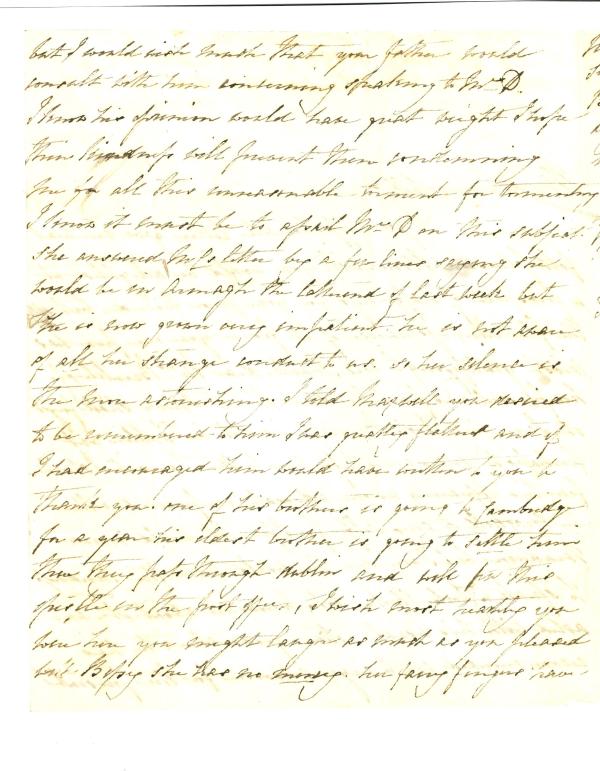 but I would wish much that your father would
consult with him concerning speaking to Mrs D.
I know his opinion would have great weight I hope
their kindness will prevent them condemning
me for all this unreasonable torment for tormenting
I know it must be to assail Mrs D on this subject
she answered letter by a few lines saying she
would be in Armagh the latter end of last week but
he is now grown very impatient. he is not aware
of all her strange conduct to us. so her silence is
the more astonishing. I told Maxwell you desired
to be remembered to him I was greatly and if
I had encouraged him would have written to you to
thank you. one of his brothers is going to Cambridge
for a year his eldest brother is going to settle him
there they pass through dublin and will this
epistle in the post office, I wish most heartily you
were here you might laugh as much as you pleased
Bessy she has no mercy. her fairy fingers have